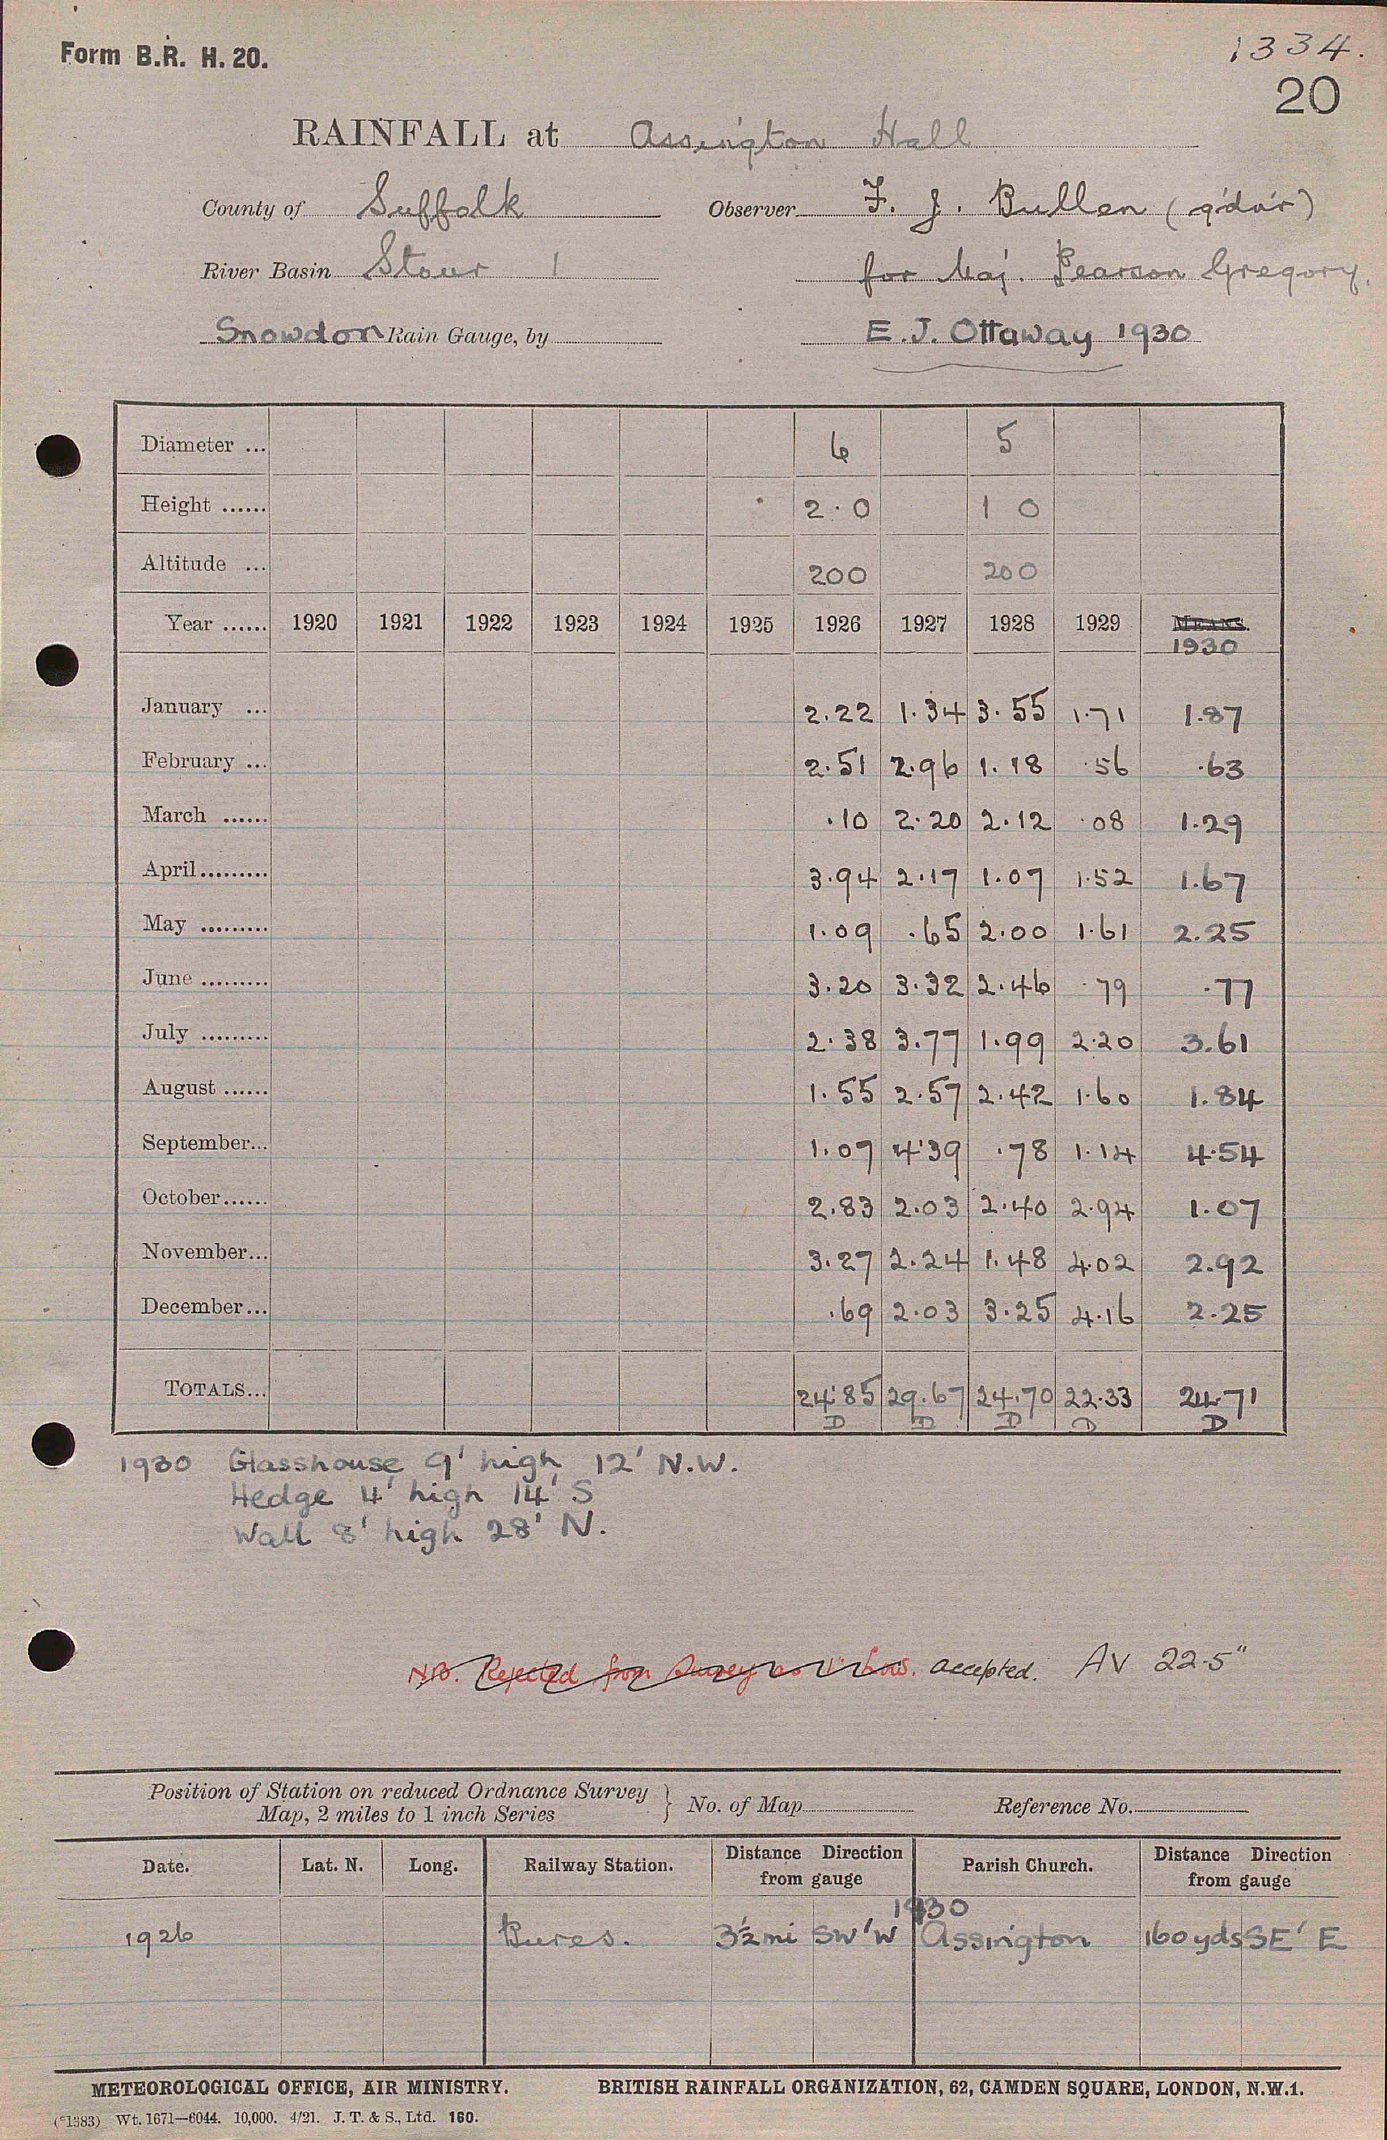 Form B.R. H. 20.
1334.
20
RAINFALL at Assington Hall
County of Suffolk Observer F. J. Bullen (g'd'n'r)
River Basin Stour 1 for Maj. Pearson Gregory.
Snowdon Rain Gauge, by E.J. Ottaway 1930
Diameter ... 6 5
Height ...... 2.0 1 0
Altitude ... 200 200
Year ...... 1920 1921 1922 1923 1924 1925 1926 1927 1928 1929 MEANS.
1930
January ... 2.22 1.34 3.55 1.71 1.87
February ... 2.51 2.96 1.18 .56 .63
March ...... .10 2.20 2.12 .08 1.29
April......... 3.94 2.17 1.07 1.52 1.67
May ......... 1.09 .65 2.00 1.61 2.25
June ......... 3.20 3.32 2.46 .79 .77
July ......... 2.38 3.77 1.99 2.20 3.61
August ...... 1.55 2.57 2.42 1.60 1.84
September... 1.07 4.39 .78 1.14 4.54
October...... 2.83 2.03 2.40 2.94 1.07
November... 3.27 2.24 1.48 4.02 2.92
December... .69 2.03 3.25 4.16 2.25
TOTALS... 24.85 29.67 24.70 22.33 24.71
D D D D D
1930 Glasshouse 9' high 12' N.W.
Hedge 4' high 14' S
Wall 8' high 28' N.
NB. Rejected from Survey as 1" low. accepted. Av 22.5"
Position of Station on reduced Ordnance Survey
Map, 2 miles to 1 inch Series } No. of Map Reference No.
Date. Lat. N. Long. Railway Station. Distance Direction from gauge Parish Church. Distance Direction from gauge
1930
1926 Bures. 3½mi SW'W Assington 160yds SE'E
METEOROLOGICAL OFFICE, AIR MINISTRY. BRITISH RAINFALL ORGANIZATION, 62, CAMDEN SQUARE, LONDON, N.W.1.
(*1383) Wt. 1671—6044. 10,000. 4/21. J. T. & S., Ltd. 160.